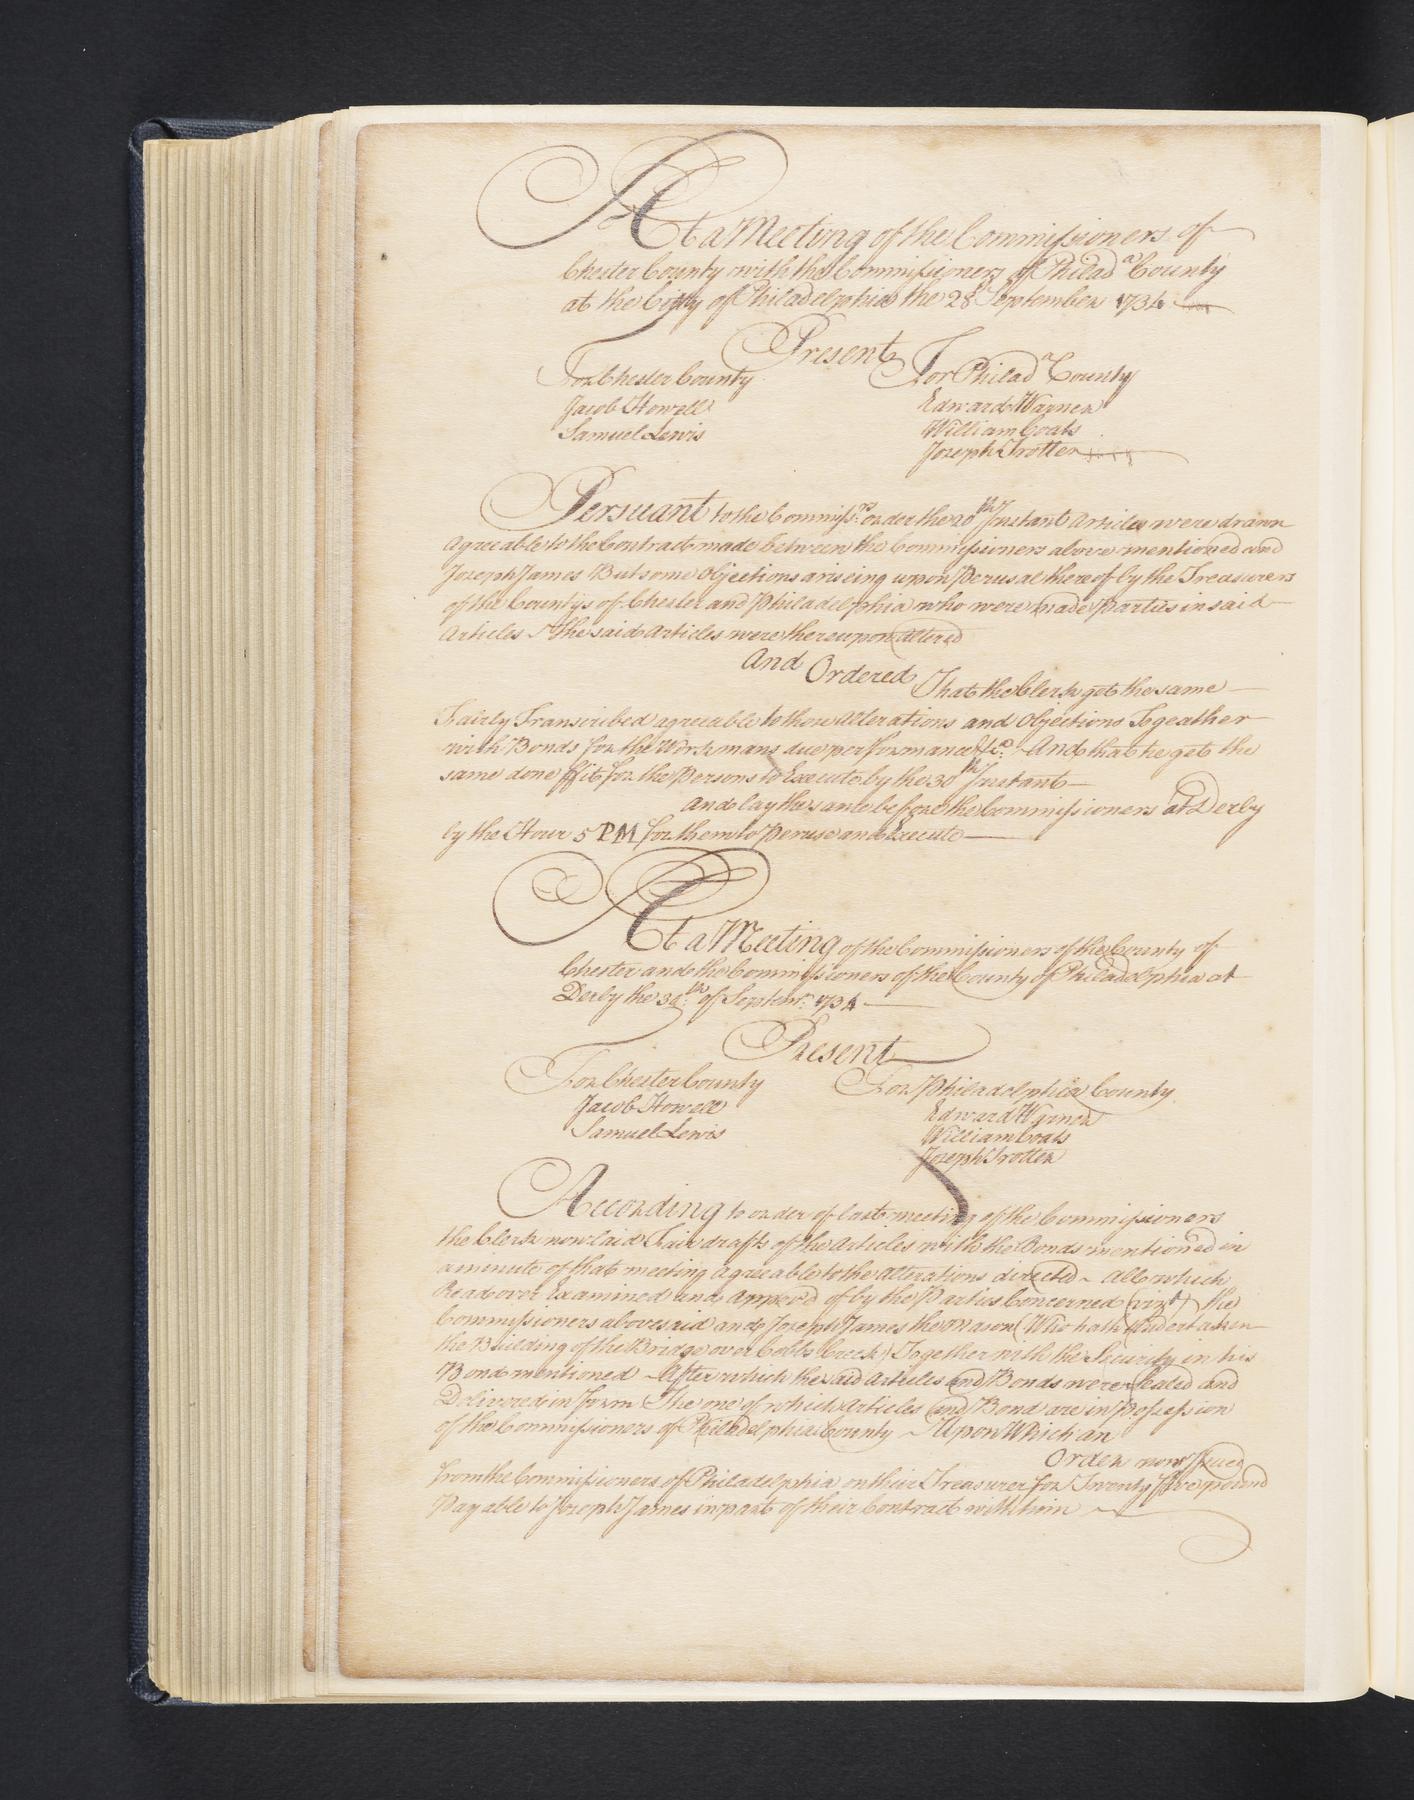 At a Meeting of the Commissioners of
Chester County with the Commissioners of Philad.a County
at the Citty of Philadelphia the 28 September 1734
Present
For Chester County
Jacob Howell
Samuel Lewis
For Philad.a County
Edward Warner
William Coats
Joseph Trotter
Persuant to the Commiss.rs order the 20th Instant Articles were drawn
Agreeable to the Contract made between the Commissioners above mentioned and
Joseph James But some Objections ariseing upon Perusal thereof by the Treasurers
of the Countys of Chester and Philadelphia who were made Parties in said
Articles the said Articles were thereupon altered
And Ordered That the Clerk get the same
Fairly Transcribed agreeable to those Alterations and Objections Togeather
with Bonds for the Workmans due performance &c.a And that he get the
same done ffit for the Persons to Execute by the 30th Instant
and lay the same before the Commissioners at Derby
by the Hour 5 PM for them to Peruse and Execute
At a Meeting of the Commissioners of the County of
Chester and the Commissioners of the County of Philadelphia at
Derby the 30th of Septem.r 1734
Present
For Chester County
Jacob Howell
Samuel Lewis
For Philadelphia County
Edward Warner
William Coats
Joseph Trotter
According to order of last meeting of the Commissioners
the Clerk now laid Fair drafts of the Articles with the Bonds mentioned in
a minute of that meeting Agreeable to the Alterations directed ~ All which
Read over Examined and Approv'd of by the Parties Concerned (vizt) the
Commissioners abovesaid and Joseph James the mason (Who hath Undertaken
the Building of the Bridge over Cobbs Creek) Together with the Security in his
Bond mentioned After which the said Articles and Bonds were Sealed and
Delivered in form The one of which Articles and Bond are in Possession
of the Commissioners of Philadelphia County ~ Upon Which an
Order now Issued
from the Commissioners of Philadelphia on their Treasurer for Twenty five pound
Payable to Joseph James in part of their Contract with him